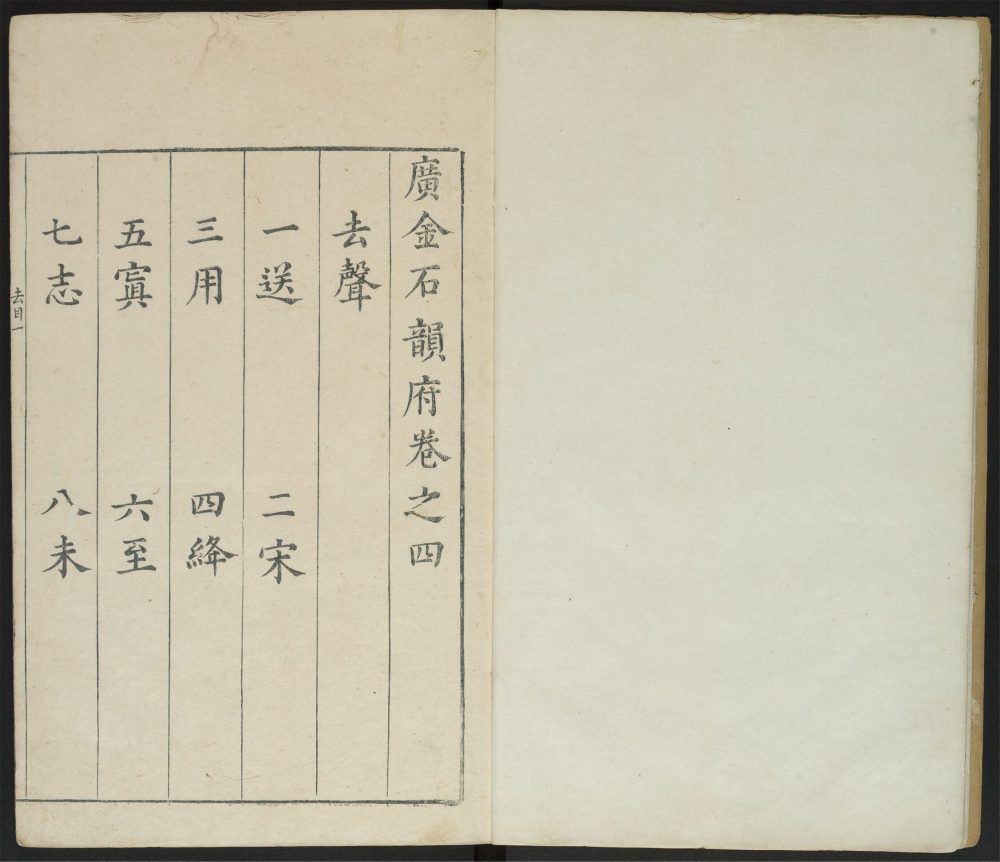 廣金石韻府卷之四
去聲
一送 二宋
三用 四絳
五寘 六至
七志 八未
去目一